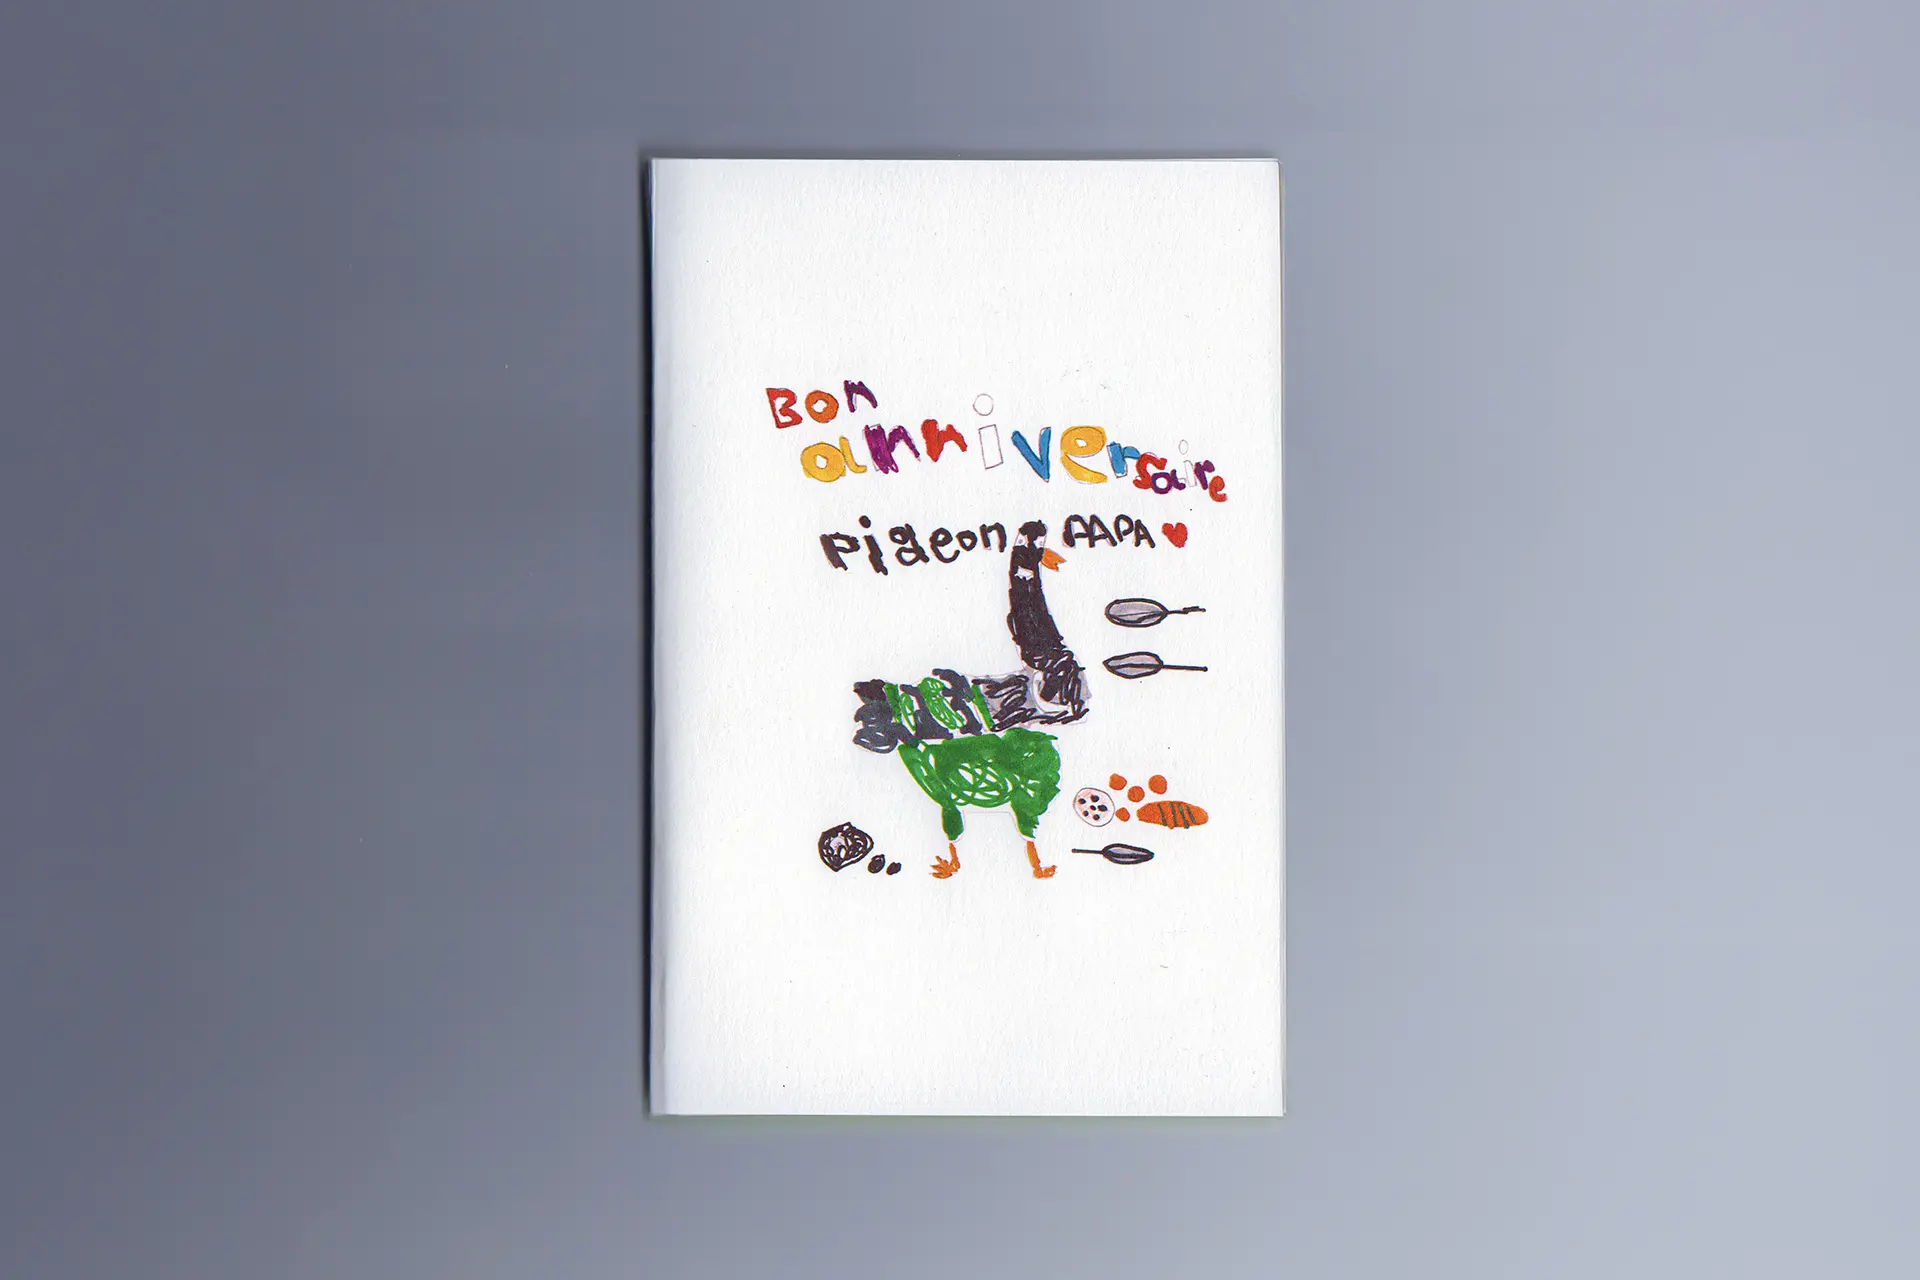 Bon
anniversaire
pigeon PAPA